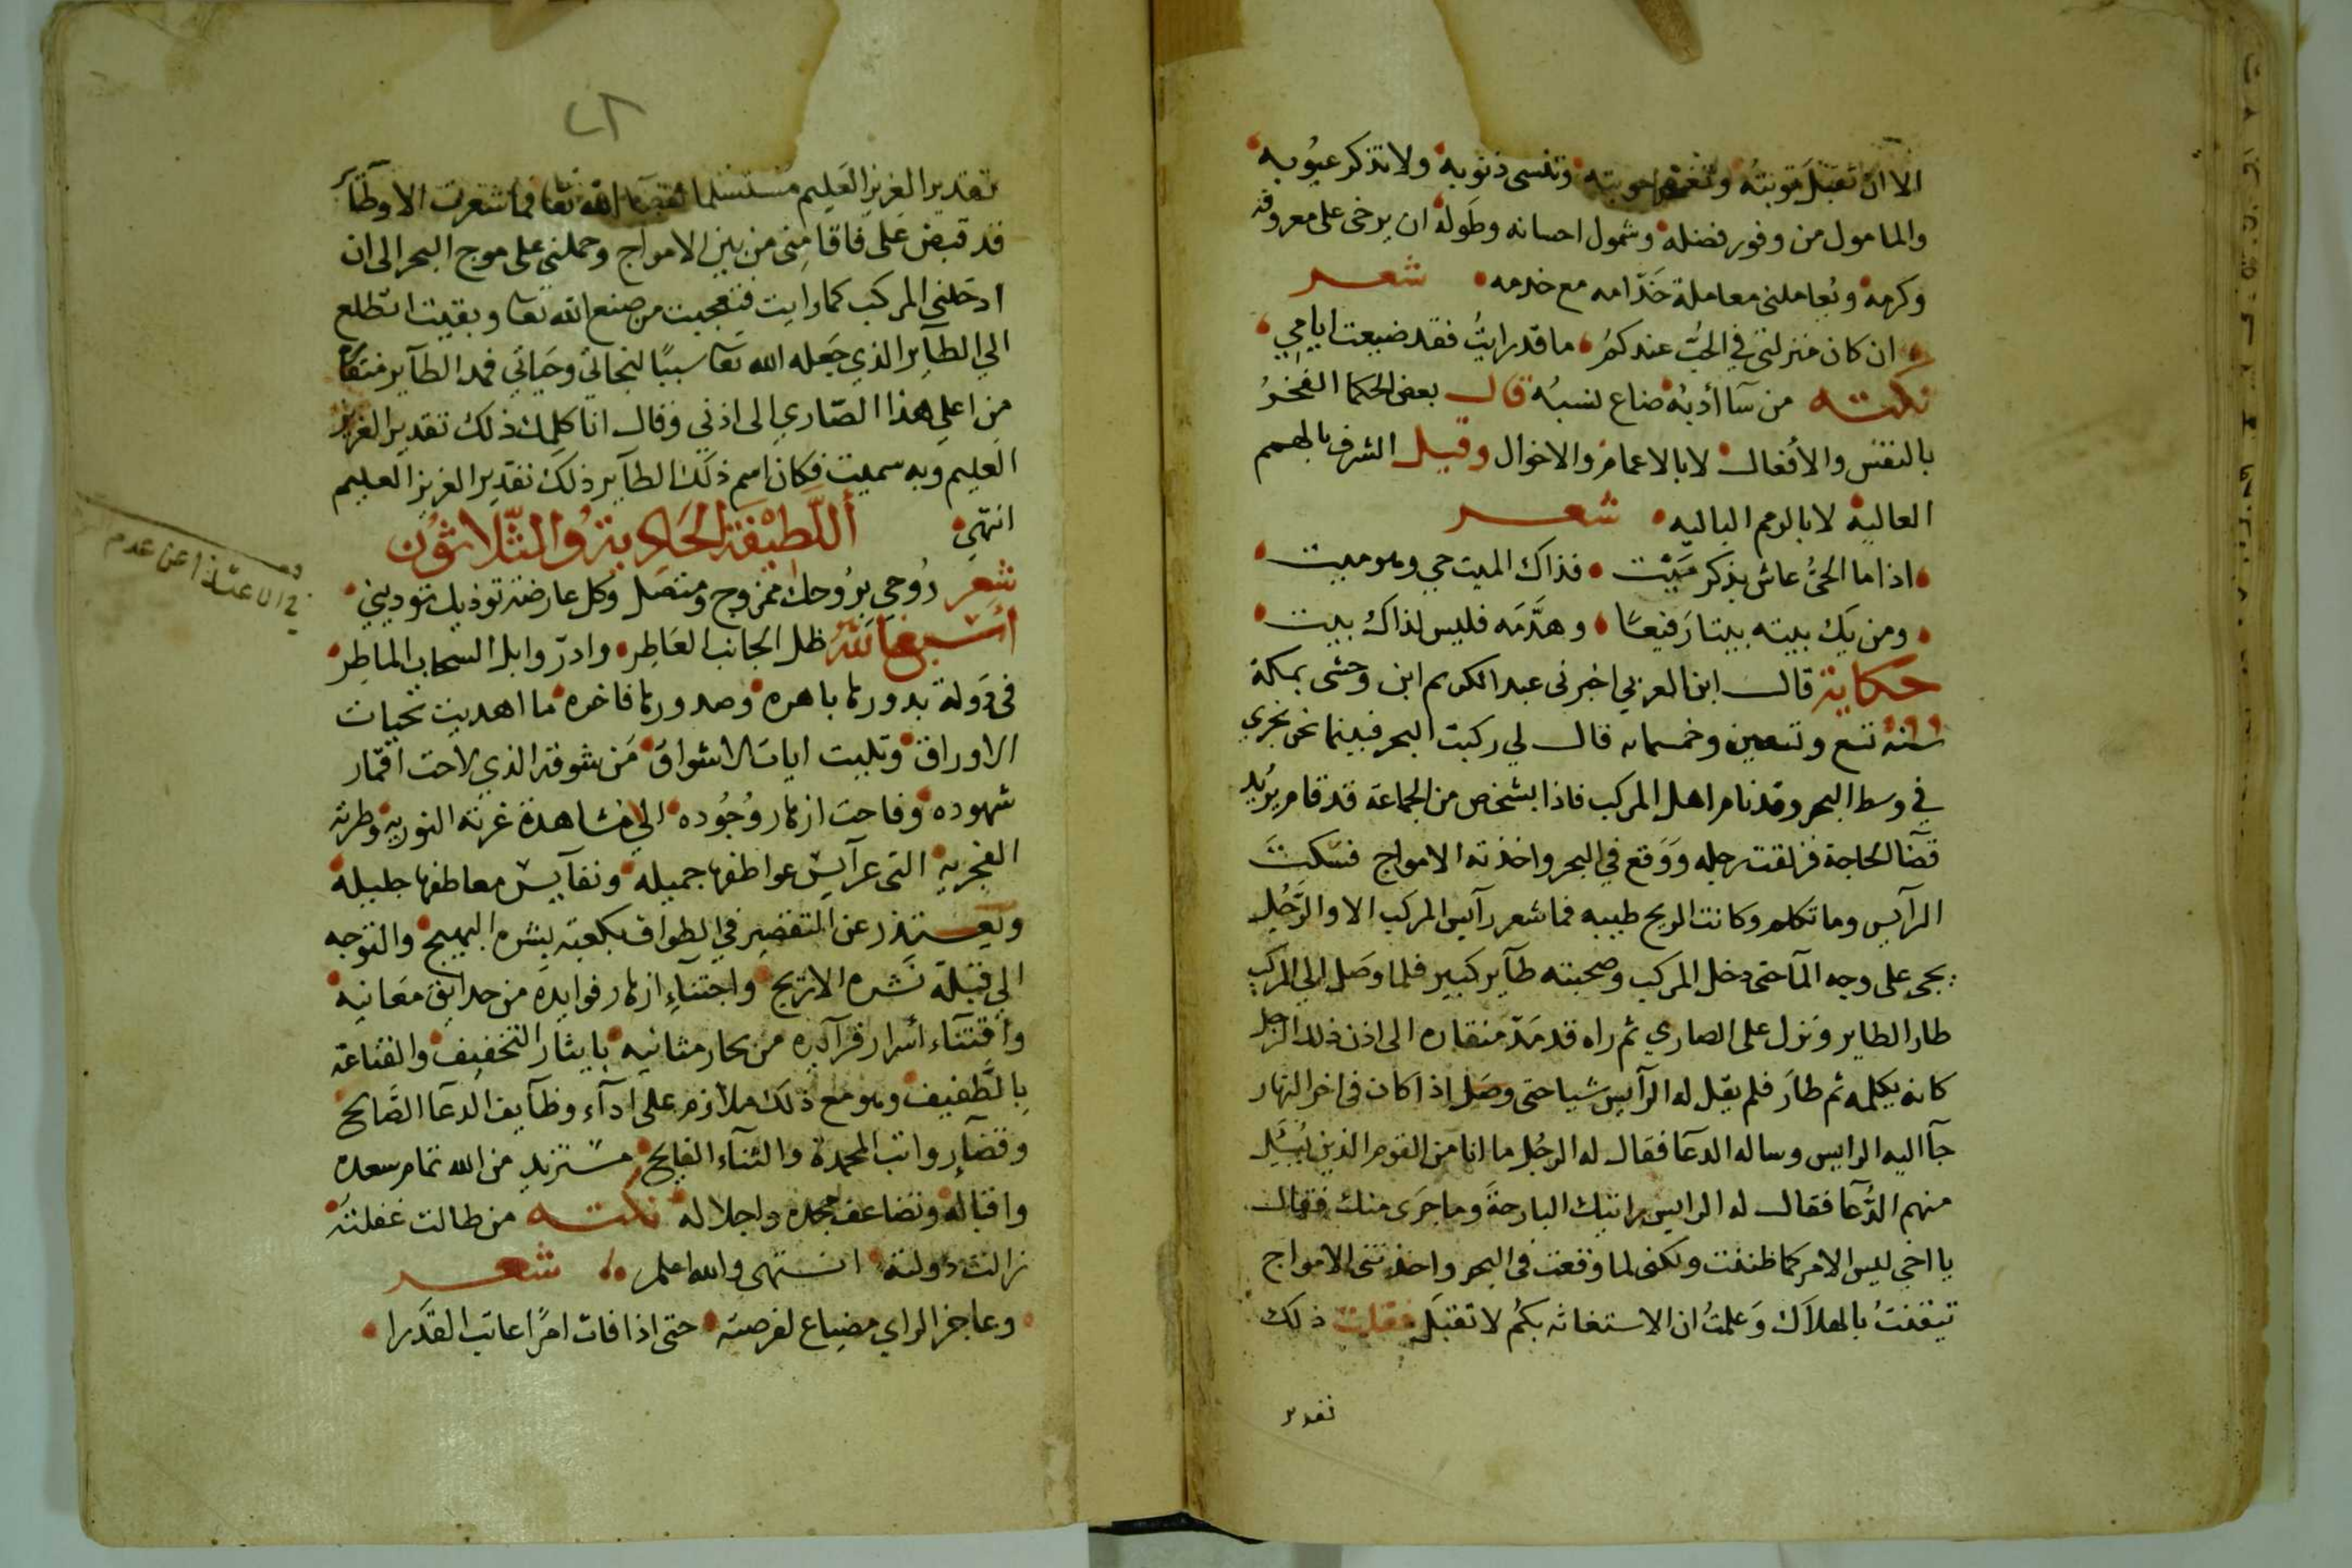 الا ان تقبل توبته وتغفر حوبته وتنسى ذنوبه ولا تذكر عيوبه
والمامول من وفور فضله وشمول احسانه وطوله ان يرخى على معروفه
وكرمه ويعاملنى معاملة خدامه مع خدمه شعر
ان كان منزلتى في الحب عندكم ما قد رايت فقد ضيعت ايامي
نكته من سآ أدبه ضاع نسبه قال بعض الحكما الفخر
بالنفس والأفعال لا بالاعمام والاخوال وقيل الشرف بالهمم
العالية لا بالرمم الباليه شعر
اذا ما الحى عاش بذكر ميت فذاك الميت حي وهو ميت
ومن يك بيته بيتا رفيعا وهدمه فليس لذاك بيت
حكاية قال ابن العربي اخبرنى عبد الكريم ابن وحشى بمكة
سنة تسع وتسعين وخمسمايه قال لي ركبت البحر فبينما نحن نجري
في وسط البحر وقد نام اهل المركب فاذا بشخص من الجماعة قد قام يريد
قضآ الحاجة فزلقت رجله ووقع في البحر واخذته الامواج فسكت
الرآيس وما تكلم وكانت الريح طيبه فما شعر رآيس المركب الا والرجل
يجى على وجه المآ حتى دخل المركب وصحبته طآير كبير فلما وصل الى المركب
طار الطاير ونزل على الصاري ثم راه قد مد منقاره الى اذن ذلك الرجل
كانه يكلمه ثم طار فلم يقل له الرآيس شيا حتى وصل اذا كان فى اخر النهار
جآ اليه الرايس وساله الدعآ فقال له الرجل ما انا من القوم الذين يسئل
منهم الدعآ فقال له الرايس رايتك البارحة وما جرى منك فقال
يا اخي ليس الامر كما ظننت ولكنى لما وقعت فى البحر واخذتنى الامواج
تيقنت بالهلاك وعلمت ان الاستغاثه بكم لا تقبل فقلت ذلك
تقدير
تقدير العزيز العليم مستسلما لقضآ الله تعا فما شعرت الا وطآير
قد قبض على فاقامنى من بين الامواج وحملني على موج البحر الى ان
ادخلني المركب كما رايت فتعجبت من صنع الله تعا وبقيت اتطلع
الي الطاير الذي جعله الله تعا سببا لنجاتي وحياتي فمد الطآير منقاره
من اعلي هذا الصاري الى اذني وقال انا كلمك ذلك تقدير العزيز
العليم وبه سميت فكان اسم ذلك الطآير ذلك تقدير العزيز العليم
انتهى أللطيفة الحادية والثلاثون
في الاعتذار عن عدم
شعر روحي بروحك ممزوج ومتصل وكل عارضة توذيك توذيني
أسبغ الله ظل الجانب العاطر وادر وابل السحاب الماطر
فى دولة بدورها باهره وصدورها فاخره ما اهديت تحيات
الاوراق وتليت ايات الاشواق من شوقه الذي لاحت اقمار
شهوده وفاحت ازهار وجوده الي مشاهدة غرته النورية وطرته
الفجريه التى عرآيس عواطفها جميله ونفآيس معاطفها جليله
ويعتذر عن التقصير في الطواف بكعبة بشره البهيج والتوجه
الي قبلة نشره الاريج واجتناء ازهار فوايده من حدايق معانيه
واقتنآء أسرار فرآيده من بحار مثانيه بايثار التخفيف والقناعة
بالطفيف وهو مع ذلك ملازم على ادآء وظآيف الدعآ الصالح
وقضآ رواتب المحمدة والثنآء الفايح مستزيد من الله تمام سعده
واقباله وتضاعف مجده واجلاله نكته من طالت غفلته
زالت دولته انتهى والله اعلم شعر
وعاجز الراي مضياع لفرصته حتى اذا فات امرا عاتب القدرا